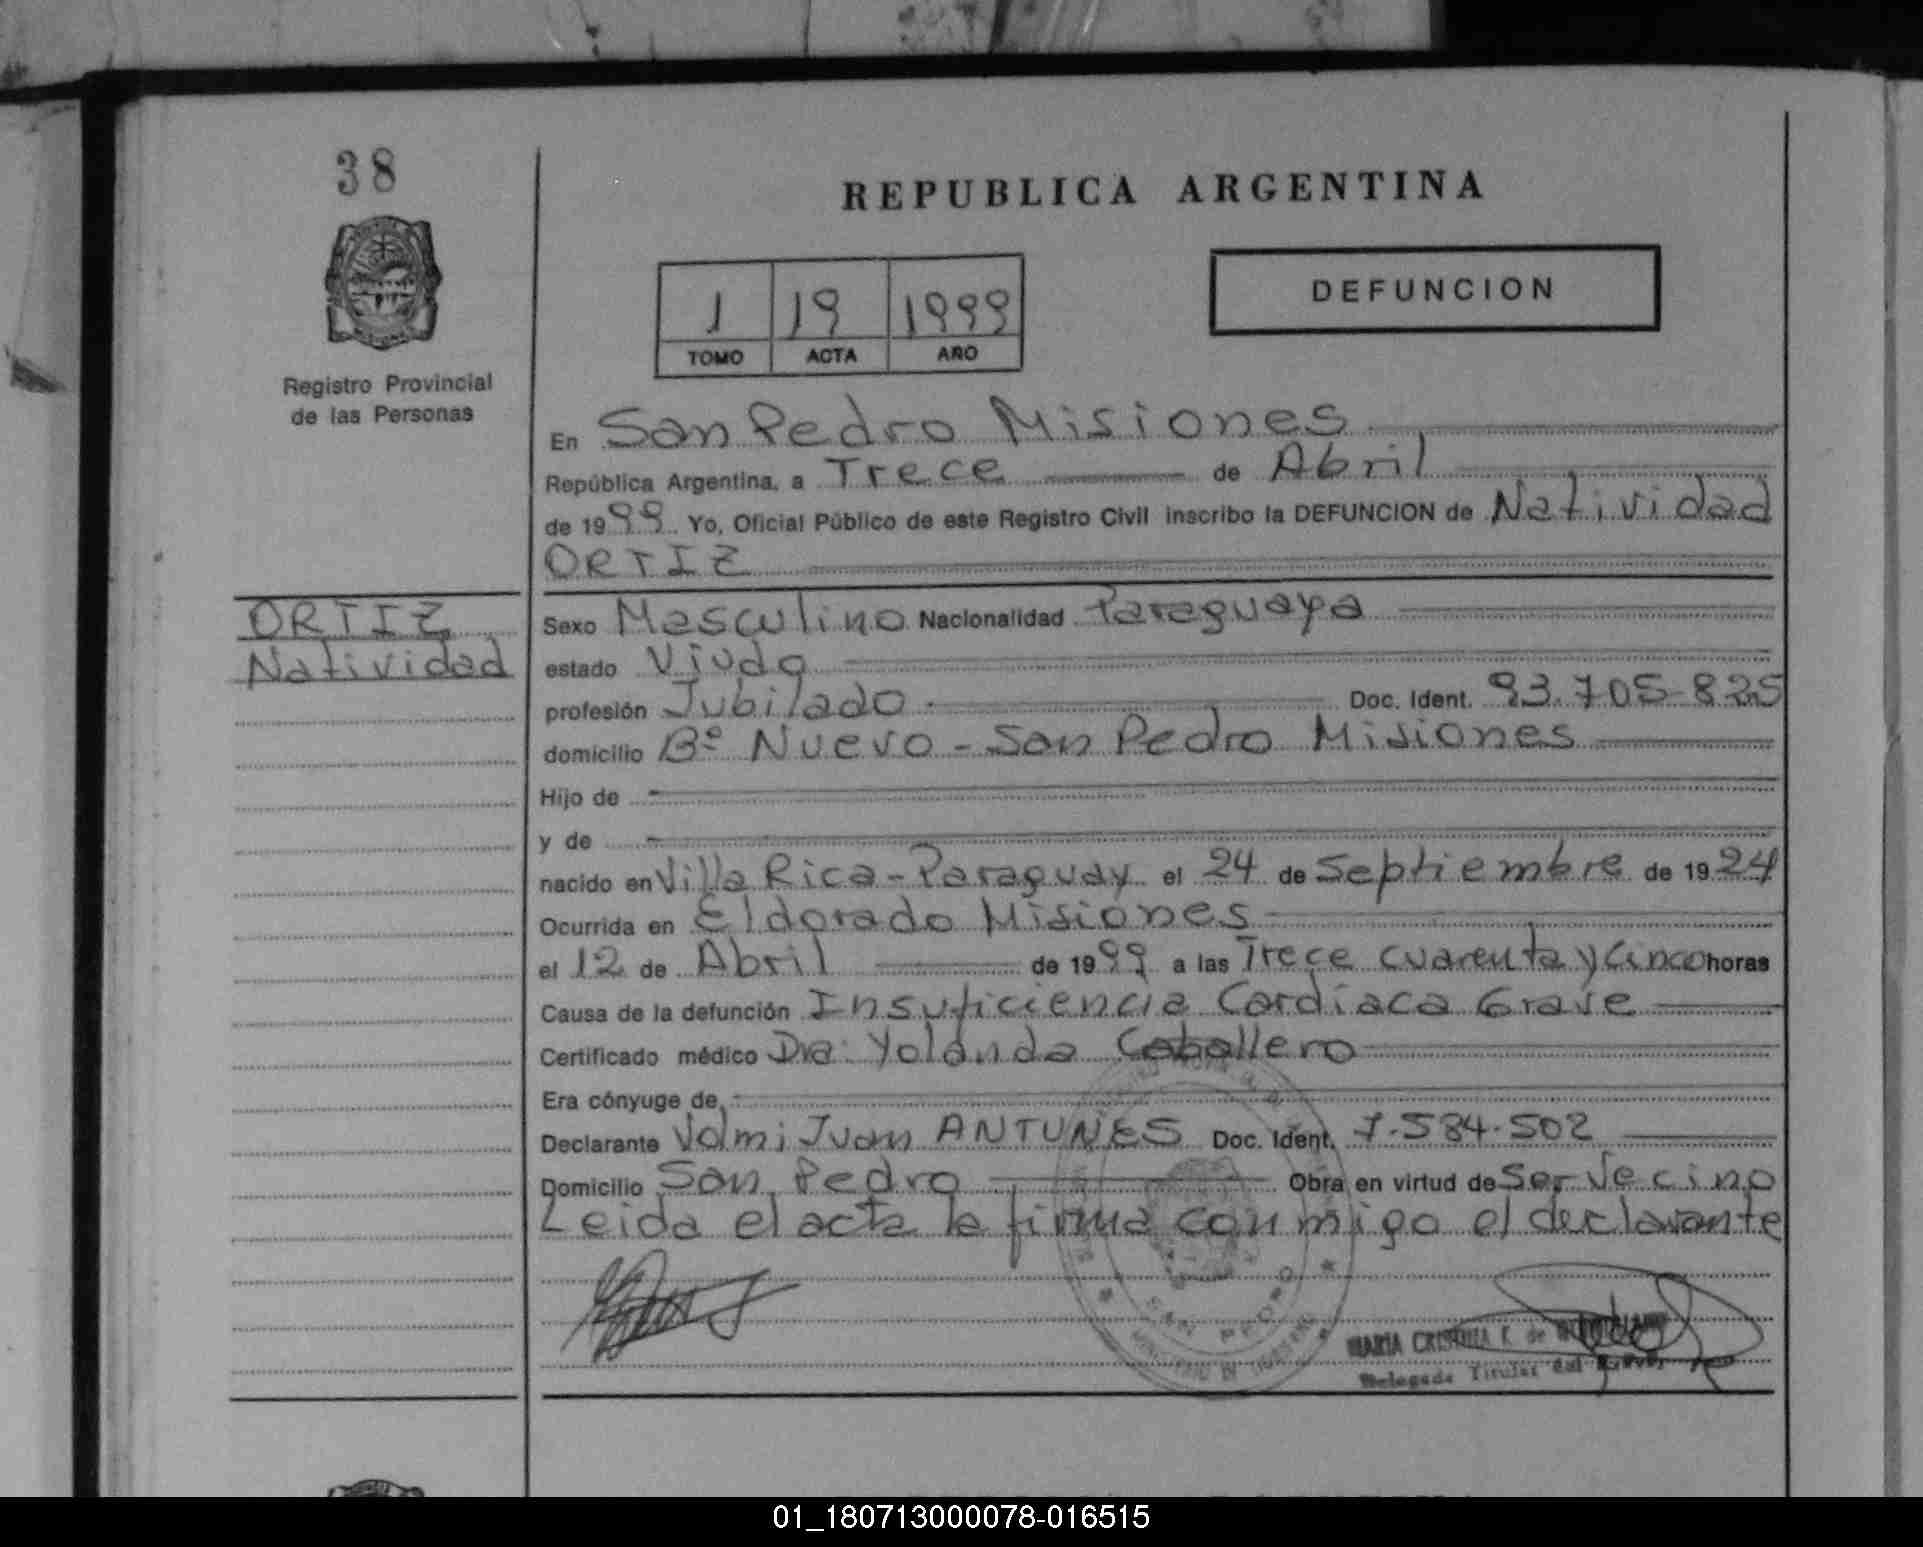 38
REPUBLICA ARGENTINA
DEFUNCION
1 19 1999
TOMO ACTA AÑO
Registro Provincial
de las Personas
En San Pedro Misiones
República Argentina, a Trece de Abril
de 1999 Yo, Oficial Público de este Registro Civil inscribo la DEFUNCION de Natividad
ORTIZ
ORTIZ
Natividad
Sexo Masculino Nacionalidad Paraguaya
estado Viudo
profesión Jubilado Doc. Ident. 93.705-825
domicilio Bº Nuevo - San Pedro Misiones
Hijo de
y de
nacido en Villa Rica - Paraguay el 24 de Septiembre de 1924
Ocurrida en Eldorado Misiones
el 12 de Abril de 1999 a las Trece cuarenta y Cinco horas
Causa de la defunción Insuficiencia Cardiaca Grave
Certificado médico Dra. Yolanda Caballero
Era cónyuge de
Declarante Volmi Juan ANTUNES Doc. Ident. 7.584.502
Domicilio San Pedro Obra en virtud de Ser Vecino
Leida el acta la firma conmigo el declarante
SAN PEDRO
MARIA CRISTINA F. de
Delegada Titular del
01_180713000078-016515